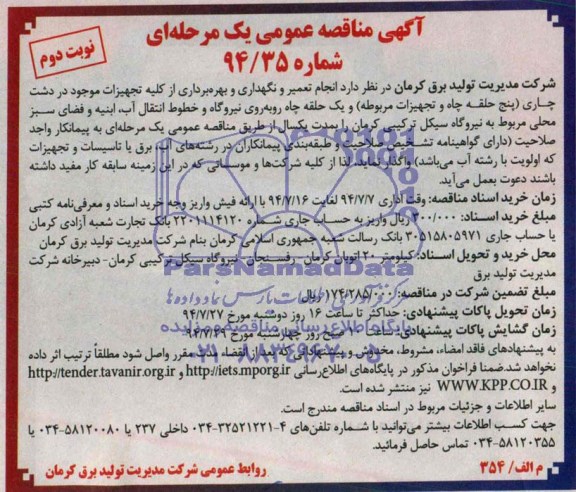 آگهی مناقصه عمومی یک مرحله‌ای
شماره ۹۴/۳۵
نوبت دوم
شرکت مدیریت تولید برق کرمان در نظر دارد انجام تعمیر و نگهداری و بهره‌برداری از کلیه تجهیزات موجود در دشت
چاری (پنج حلقه چاه و تجهیزات مربوطه) و یک حلقه چاه روبه‌روی نیروگاه و خطوط انتقال آب، ابنیه و فضای سبز
محلی مربوط به نیروگاه سیکل ترکیبی کرمان را بمدت یکسال از طریق مناقصه عمومی یک مرحله‌ای به پیمانکار واجد
صلاحیت (دارای گواهینامه تشخیص صلاحیت و طبقه‌بندی پیمانکاران در رشته‌های آب، برق یا تاسیسات و تجهیزات
که اولویت با رشته آب می‌باشد) واگذار نماید. لذا از کلیه شرکت‌ها و موسساتی که در این زمینه سابقه کار مفید داشته
باشند دعوت بعمل می‌آید.
زمان خرید اسناد مناقصه: وقت اداری ۹۴/۷/۷ لغایت ۹۴/۷/۱۶ با ارائه فیش واریز وجه خرید اسناد و معرفی‌نامه کتبی
مبلغ خرید اسناد: ۳۰۰/۰۰۰ ریال واریز به حساب جاری شماره ۲۲۰۱۱۱۴۱۲۰ بانک تجارت شعبه آزادی کرمان
یا حساب جاری ۳۰۵۱۵۸۰۵۹۷۱ بانک رسالت شعبه جمهوری اسلامی کرمان بنام شرکت مدیریت تولید برق کرمان
محل خرید و تحویل اسناد: کیلومتر ۲۰ اتوبان کرمان - رفسنجان - نیروگاه سیکل ترکیبی کرمان- دبیرخانه شرکت
مدیریت تولید برق
مبلغ تضمین شرکت در مناقصه: ۱۷۴/۲۸۵/۰۰۰ ریال
زمان تحویل پاکات پیشنهادی: حداکثر تا ساعت ۱۶ روز دوشنبه مورخ ۹۴/۷/۲۷
زمان گشایش پاکات پیشنهادی: ساعت ۱۰ صبح روز چهارشنبه مورخ ۹۴/۷/۲۹
به پیشنهادهای فاقد امضاء، مشروط، مخدوش و پیشنهاداتی که بعد از انقضاء مدت مقرر واصل شود مطلقاً ترتیب اثر داده
نخواهد شد.ضمنا فراخوان مذکور در پایگاه‌های اطلاع‌رسانی http://iets.mporg.ir و http://tender.tavanir.org.ir
و WWW.KPP.CO.IR نیز منتشر شده است.
سایر اطلاعات و جزئیات مربوط در اسناد مناقصه مندرج است.
جهت کسب اطلاعات بیشتر می‌توانید با شماره تلفن‌های ۴-۰۳۴-۳۲۵۲۱۲۲۱ داخلی ۲۳۷ یا ۵۸۱۲۰۰۸۰-۰۳۴ یا
۵۸۱۲۰۳۵۵-۰۳۴ تماس حاصل فرمائید.
م الف/ ۳۵۴
روابط عمومی شرکت مدیریت تولید برق کرمان
ParsNamadData
مرکز فرآوری اطلاعات پارس نماد داده‌ها
پایگاه اطلاع رسانی مناقصه و مزایده
۰۲۱-۸۸۳۴۹۶۷۰-۵